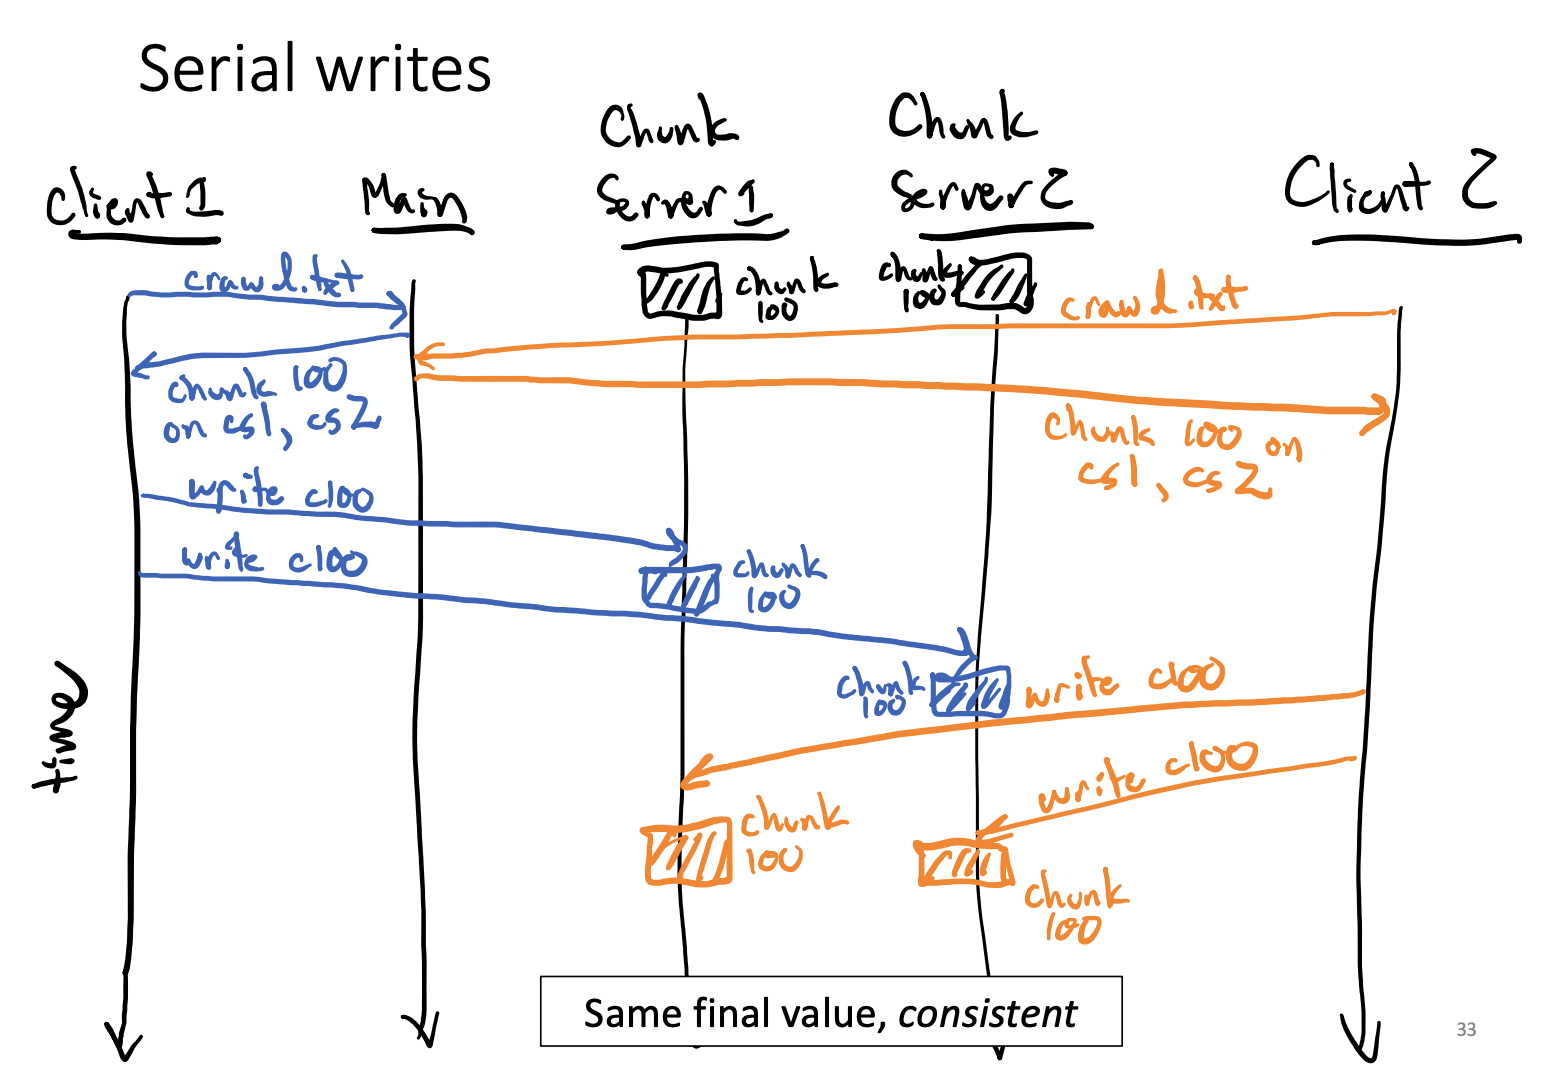 Serial writes
Client 1
Main
Chunk
Server 1
Chunk
Server 2
Client 2
crawl.txt
chunk
100
chunk
100
crawl.txt
chunk 100
on cs1, cs2
chunk 100 on
cs1, cs2
write c100
write c100
chunk
100
chunk
100
write c100
write c100
chunk
100
chunk
100
time
Same final value, consistent
33